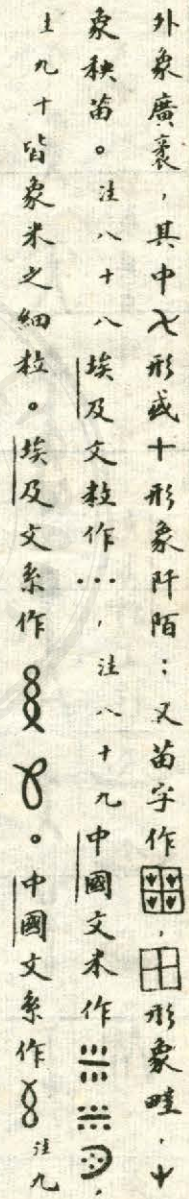 外象廣袤，其中乂形或十形象阡陌：又苗字作，田形象畦，屮
象秧苗。注八十八埃及文粒作…，注八十九中國文米作，
注九十皆象米之細粒。埃及文系作。中國文系作注九